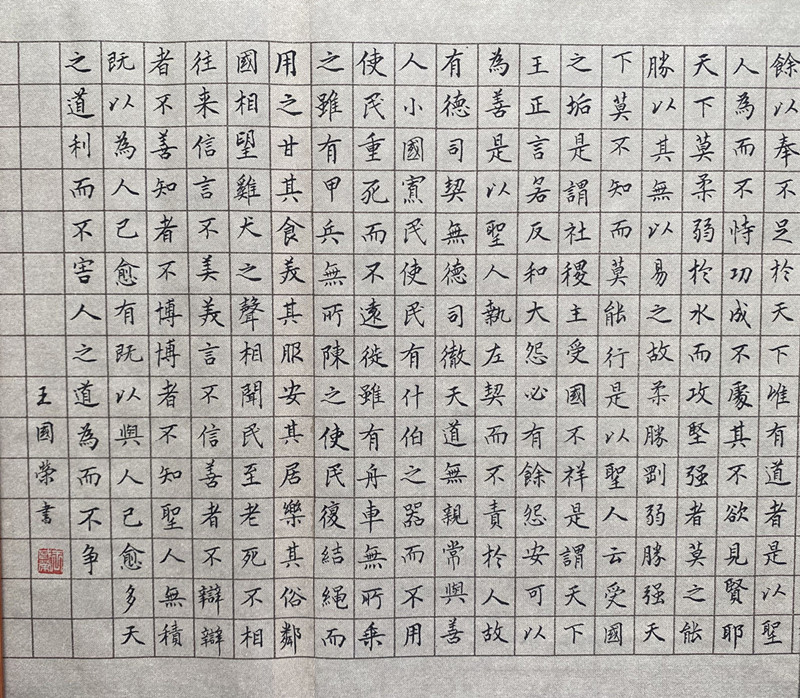 餘以奉不足於天下唯有道者是以聖
人為而不恃功成不處其不欲見賢耶
天下莫柔弱於水而攻堅强者莫之能
勝以其無以易之故柔勝剛弱勝强天
下莫不知而莫能行是以聖人云受國
之垢是謂社稷主受國不祥是謂天下
王正言若反和大怨必有餘怨安可以
為善是以聖人執左契而不責於人故
有德司契無德司徹天道無親常與善
人小國寡民使民有什伯之器而不用
使民重死而不遠徙雖有舟車無所乘
之雖有甲兵無所陳之使民復結繩而
用之甘其食美其服安其居樂其俗鄰
國相望雞犬之聲相聞民至老死不相
往来信言不美美言不信善者不辯辯
者不善知者不博博者不知聖人無積
既以為人己愈有既以與人己愈多天
之道利而不害人之道為而不争
王國榮書